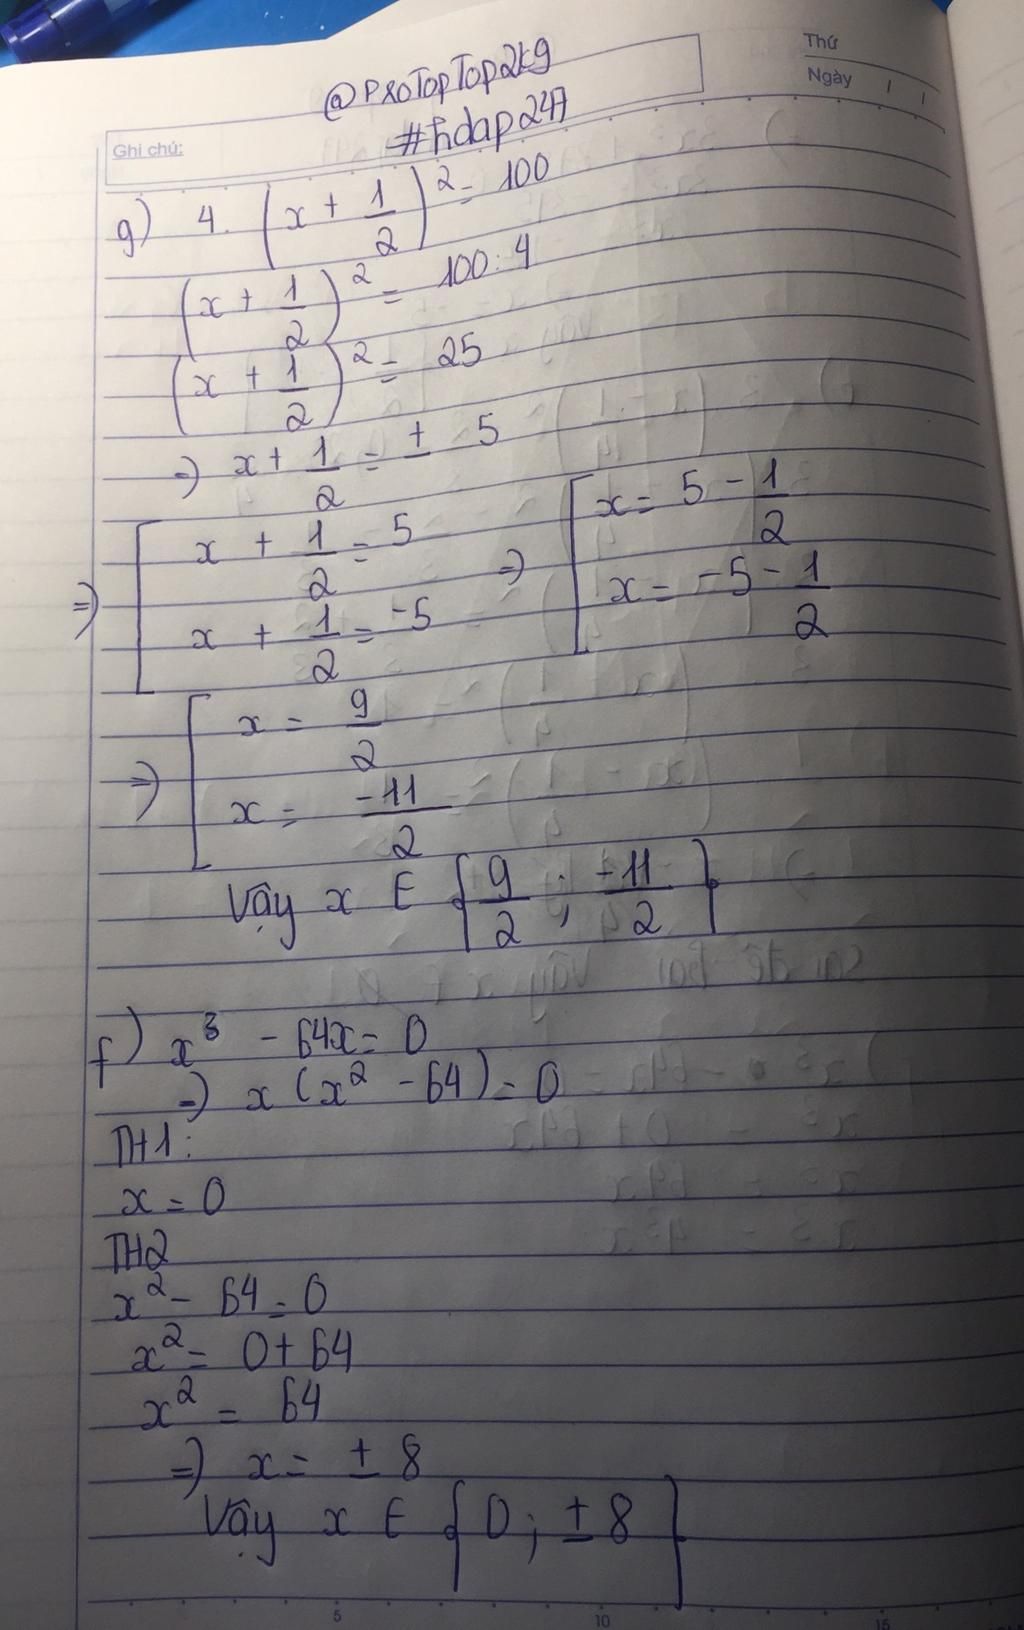 Thứ
Ngày / /
@ProTopTop2k9
Ghi chú:
#hdap247
g) 4. (x + 1/2)² = 100
(x + 1/2)² = 100 : 4
(x + 1/2)² = 25
=> x + 1/2 = ± 5
=> [ x + 1/2 = 5 => [ x = 5 - 1/2
x + 1/2 = -5 x = -5 - 1/2
=> [ x = 9/2
x = -11/2
Vậy x ∈ {9/2 ; -11/2}
f) x³ - 64x = 0
=> x (x² - 64) = 0
TH1:
x = 0
TH2
x² - 64 = 0
x² = 0 + 64
x² = 64
=> x = ± 8
Vậy x ∈ {0 ; ± 8}
5 10 15